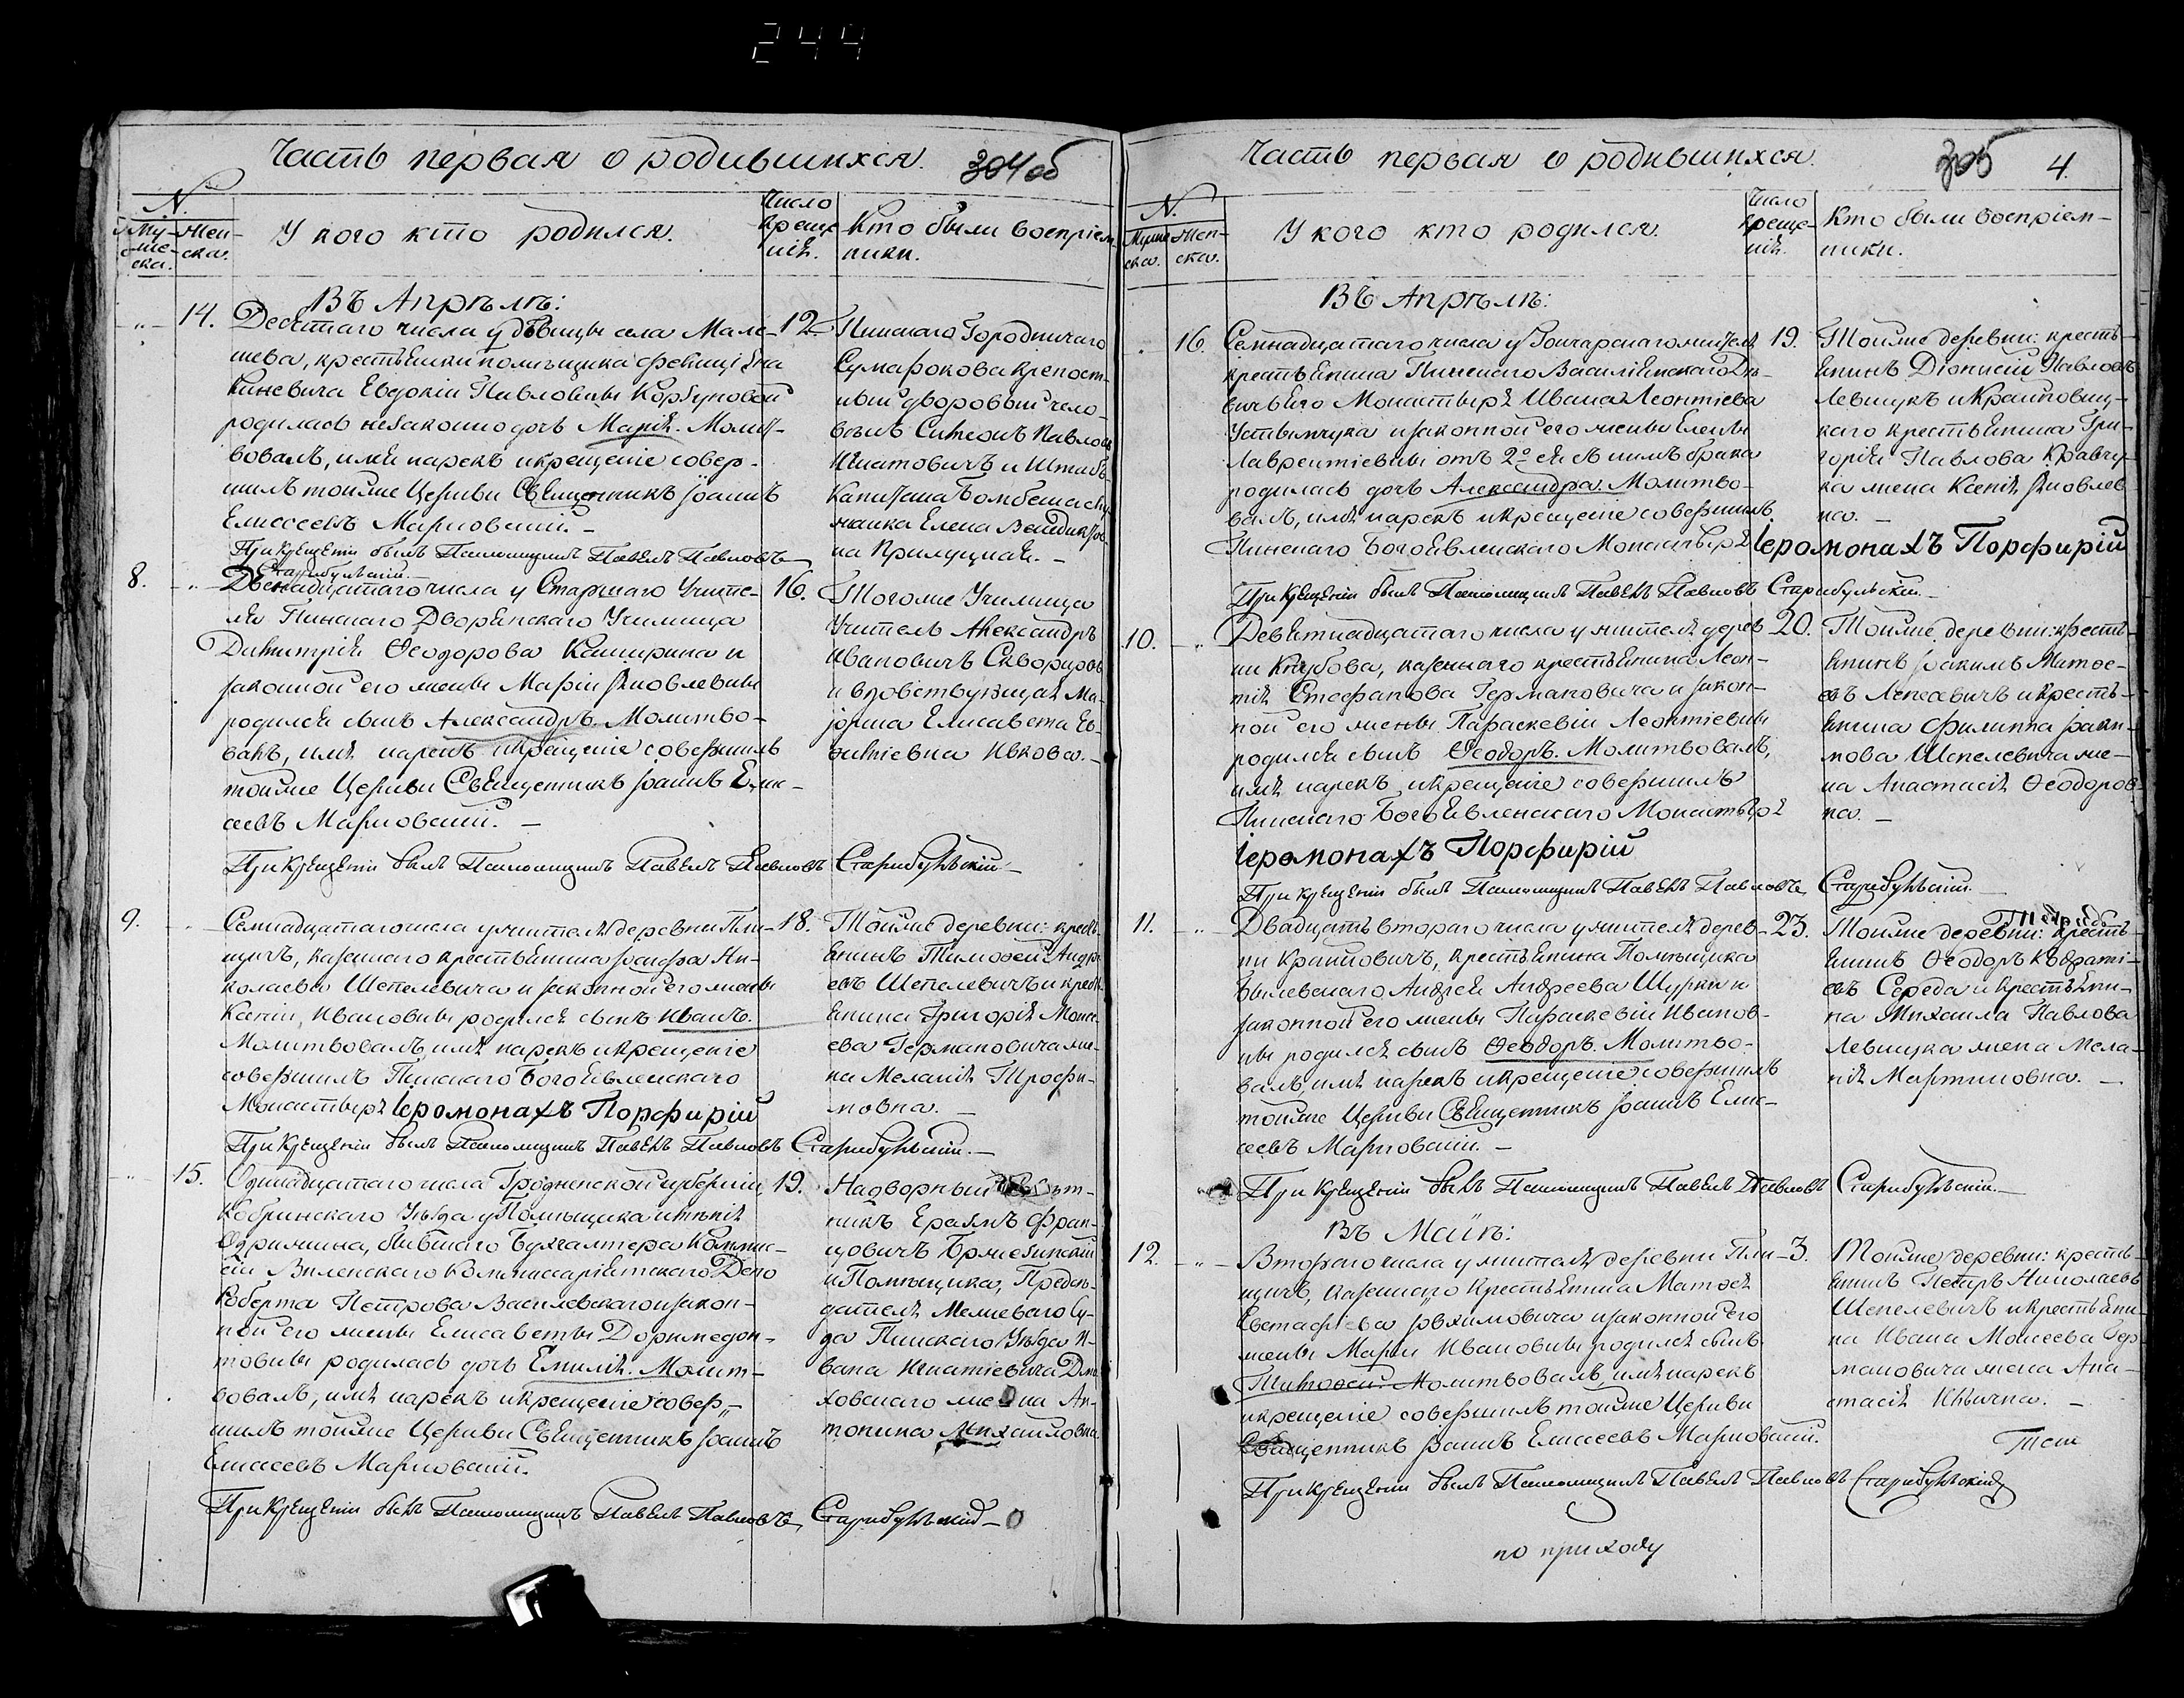 244
Часть первая о родившихся. 304 об
N.
Му-
же-
ска.
Жен-
ска.
У кого кто родился.
Число
креще
нiя.
Кто были воспрiем-
ники.
Въ Апрѣлѣ:
14. Десятаго числа у дѣвицы села Мале- 12.
шева, крестьянки помѣщика
Евдокiи Павловны Корбуновой
родилась незаконно дочь Марiя. Молит-
вовалъ, имя нарекъ и крещенiе совер-
шилъ тойже Церкви Священникъ Iоаннъ
Елисеевъ Марковскiй.
При Крещенiи былъ Пономарь Павелъ Павловъ
Старибульскiй.
Пинскаго Городничаго
Сумарокова крепост-
ный дворовый чело-
вѣкъ Симеонъ Павловъ
Игнатовичъ и Штабъ
Капитана
Елена
на
8. Двенадцатаго числа у Старшаго Учите- 16.
ля Пинскаго Дворянскаго Училища
Димитрiя Ѳеодорова Каширина и
законной его жены Марiи Яковлевны
родился сынъ Александръ. Молитво-
валъ, имя нарекъ и крещенiе совершилъ
тойже Церкви Священникъ Iоаннъ Ели-
сеевъ Марковскiй.
При Крещенiи былъ Пономарь Павелъ Павловъ Старибульскiй
Тогоже Училища
Учитель Александръ
Ивановичъ
и вдовствующая Ма-
iорша Елисавета Ев-
ѳимiевна Ивкова.
9. Семнадцатаго числа у жителя деревни Пле- 18.
щичъ, казеннаго крестьянина Iосифа Ни-
колаева Шепелевича и законной его жены
Ксенiи Ивановны родился сынъ Иванъ.
Молитвовалъ, имя нарекъ и крещенiе
совершилъ Пинскаго Богоявленскаго
Монастыря Iеромонахъ Порфирiй
При Крещенiи былъ Пономарь Павелъ Павловъ Старибульскiй.
Тойже деревни: кресть
янинъ Тимофей Андре
евъ Шепелевичъ и кресть
янина Григорiя Моисе
ева Германовича же-
на Меланiя Трофи-
мовна.
15. Одинадцатаго числа Гродненской губернiи, 19.
Кобринскаго Уѣзда у Помѣщика имѣнiя
бывшаго Бухгалтера Коммис-
сiи Виленскаго Коммиссарiятскаго Депо
Роберта Петрова Василевскаго и закон-
ной его жены Елисаветы Доримедон-
товны родилась дочь Емилiя. Молит-
вовалъ, имя нарекъ и крещенiе совер-
шилъ тойже Церкви Священникъ Iоаннъ
Елисеевъ Марковскiй.
При Крещенiи былъ Пономарь Павелъ Павловъ Старибульскiй
Надворный Совѣт-
никъ Еразмъ Фран-
цовичъ
и Помѣщика, Предсѣ-
дателя Межеваго Су-
да Пинскаго Уѣзда И-
вана Игнатiевича
жена Ан-
тонина Михайловна
Часть первая о родившихся. 305 4.
N.
Муже
ска.
Жен-
ска.
У кого кто родился.
Число
креще-
нiя.
Кто были воспрiем-
ники.
Въ Апрѣлѣ:
16. Семнадцатаго числа у Гончарскаго жителя 19.
крестьянина Пинскаго Василiянскаго Дѣ-
вичьяго Монастыря Ивана Леонтiева
Устимчука и законной его жены Елены
Лаврентiевны отъ 2о ея съ нимъ брака
родилась дочь Александра. Молитво-
валъ, имя нарекъ и крещенiе совершилъ
Пинскаго Богоявленскаго Монастыря Iеромонахъ Порфирiй
При Крещенiи былъ Пономарь Павелъ Павловъ Старибульскiй.
Тойже деревни: кресть-
янинъ Дiонисiй Павловъ
Левчукъ и Крайнович-
каго крестьянина Гри-
горiя Павлова Кравчу-
ка жена Ксенiя Яковлев
на.
10. Девятнадцатаго числа у жителя дерев 20.
ни Кнубова, казеннаго крестьянина Леон-
тiя Стефанова Германовича и закон-
ной его жены Параскевiи Леонтiевны
родился сынъ Ѳеодоръ. Молитвовалъ,
имя нарекъ и крещенiе совершилъ
Пинскаго Богоявленскаго Монастыря
Iеромонахъ Порфирiй
При Крещенiи былъ Пономарь Павелъ Павловъ Старибульскiй.
Тойже деревни: кресть-
янинъ Iоакимъ Матѳе-
евъ и кресть-
янина Филиппа Iоаки-
мова Шепелевича же-
на Анастасiя Ѳеодоров
на.
11. Двадцать втораго числа у жителя дерев- 23.
ни Крайновичъ, крестьянина Помѣщика
Андрея Андреева Шурки и
законной его жены Параскевiи Иванов-
ны родился сынъ Ѳеодоръ. Молитво-
валъ, имя нарекъ и крещенiе совершилъ
тойже Церкви Священникъ Iоаннъ Ели-
сеевъ Марковскiй.
При Крещенiи былъ Пономарь Павелъ Павловъ Старибульскiй.
Тойже деревни: кресть-
янинъ Ѳеодоръ Кодратi-
евъ Середа и крестьяни-
на Михаила Павлова
Левчука жена Мела-
нiя Мартиновна.
Въ Маiѣ:
12. Втораго числа у жителя деревни Пле- 3.
щичъ, казеннаго крестьянина Матѳея
Евстафiева Iоахимовича и законной его
жены Марiи Ивановны родился сынъ
Тимоѳей. Молитвовалъ, имя нарекъ
и крещенiе совершилъ тойже Церкви
Священникъ Iоаннъ Елисеевъ Марковскiй.
При Крещенiи былъ Пономарь Павелъ Павловъ Старибульскiй
Тойже деревни: кресть-
янинъ Петръ Николаевъ
Шепелевичъ и крестьяни-
на Ивана Моисеева Гер-
мановича жена Ана-
стасiя Ильична.
по приходу